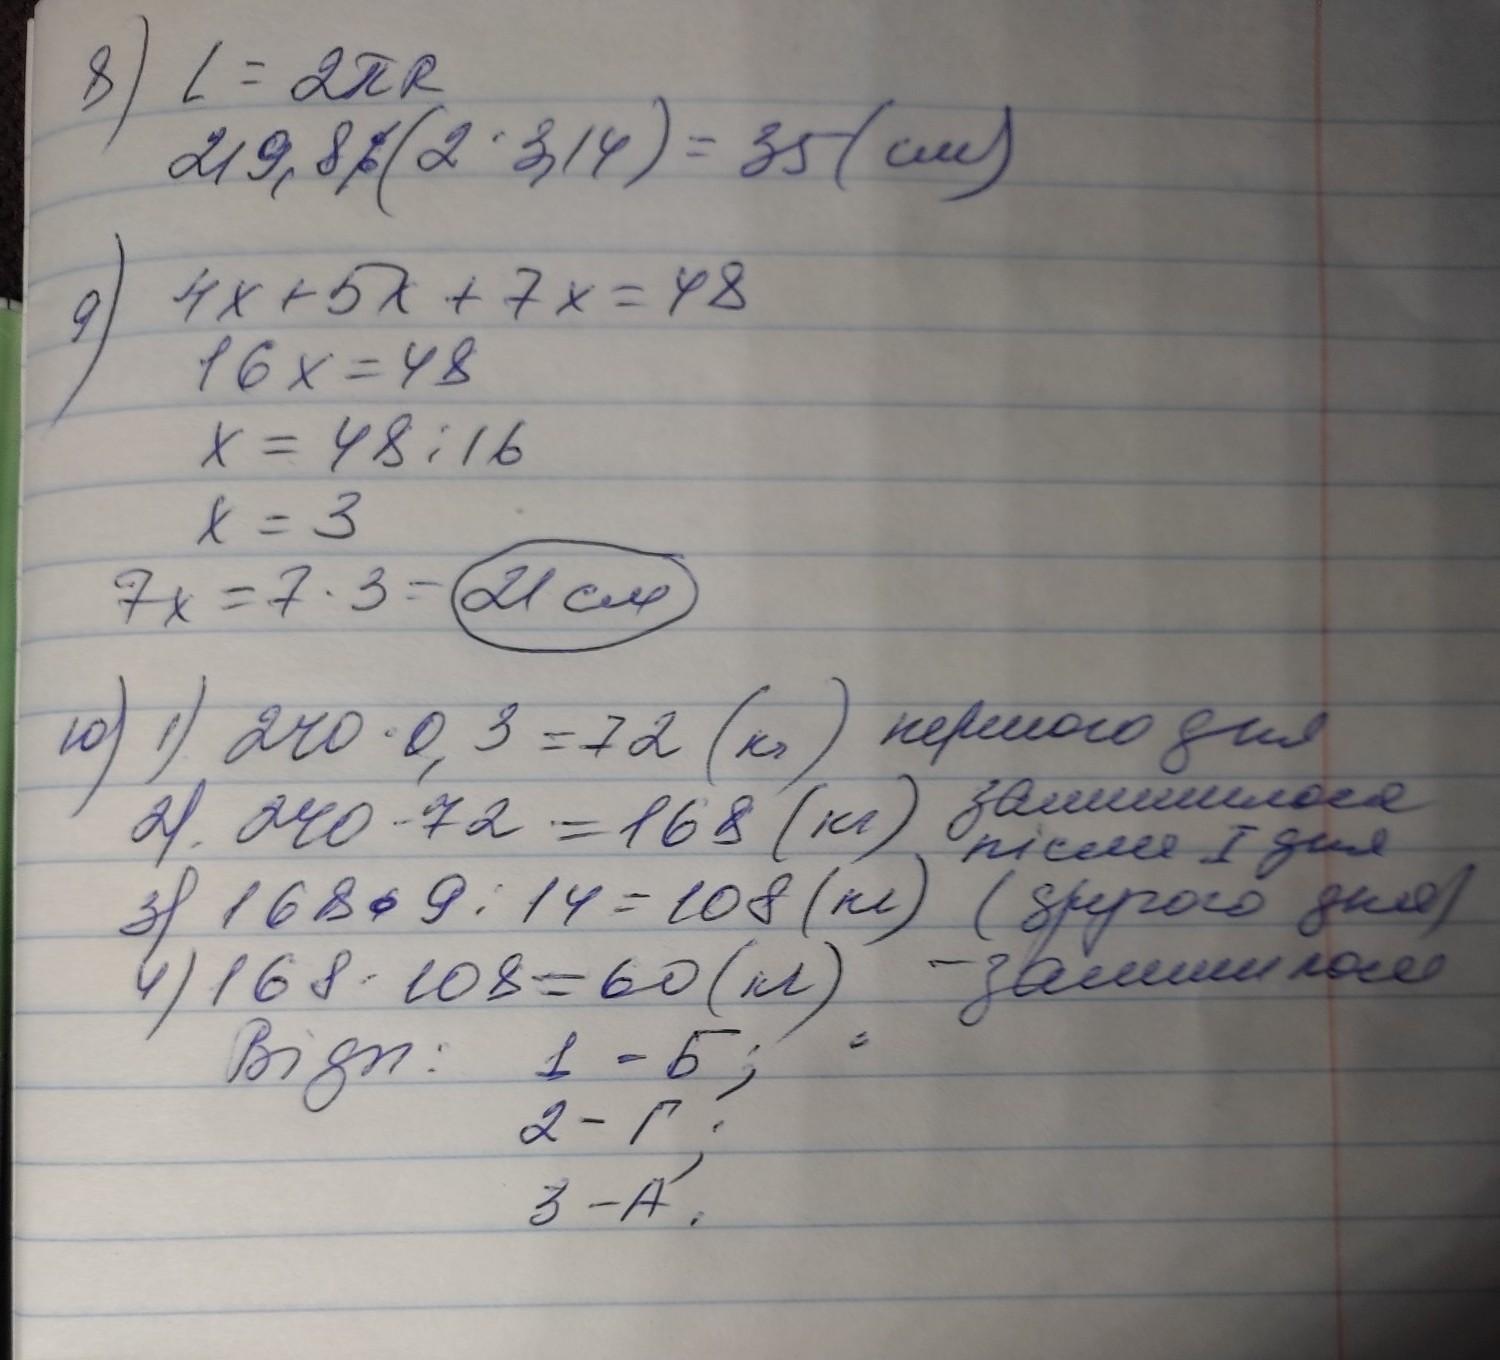 8) L = 2πR
219,8:(2·3,14) = 35 (см)
9) 4x + 5x + 7x = 48
16x = 48
x = 48:16
x = 3
7x = 7·3 = 21 см
10) 1) 240·0,3 = 72 (кг) першого дня
2). 240 - 72 = 168 (кг) залишилося
після I дня
3) 168·9:14 = 108 (кг) (другого дня)
4) 168 - 108 = 60 (кг) - залишилося
Відп: 1 - Б;
2 - Г;
3 - А.